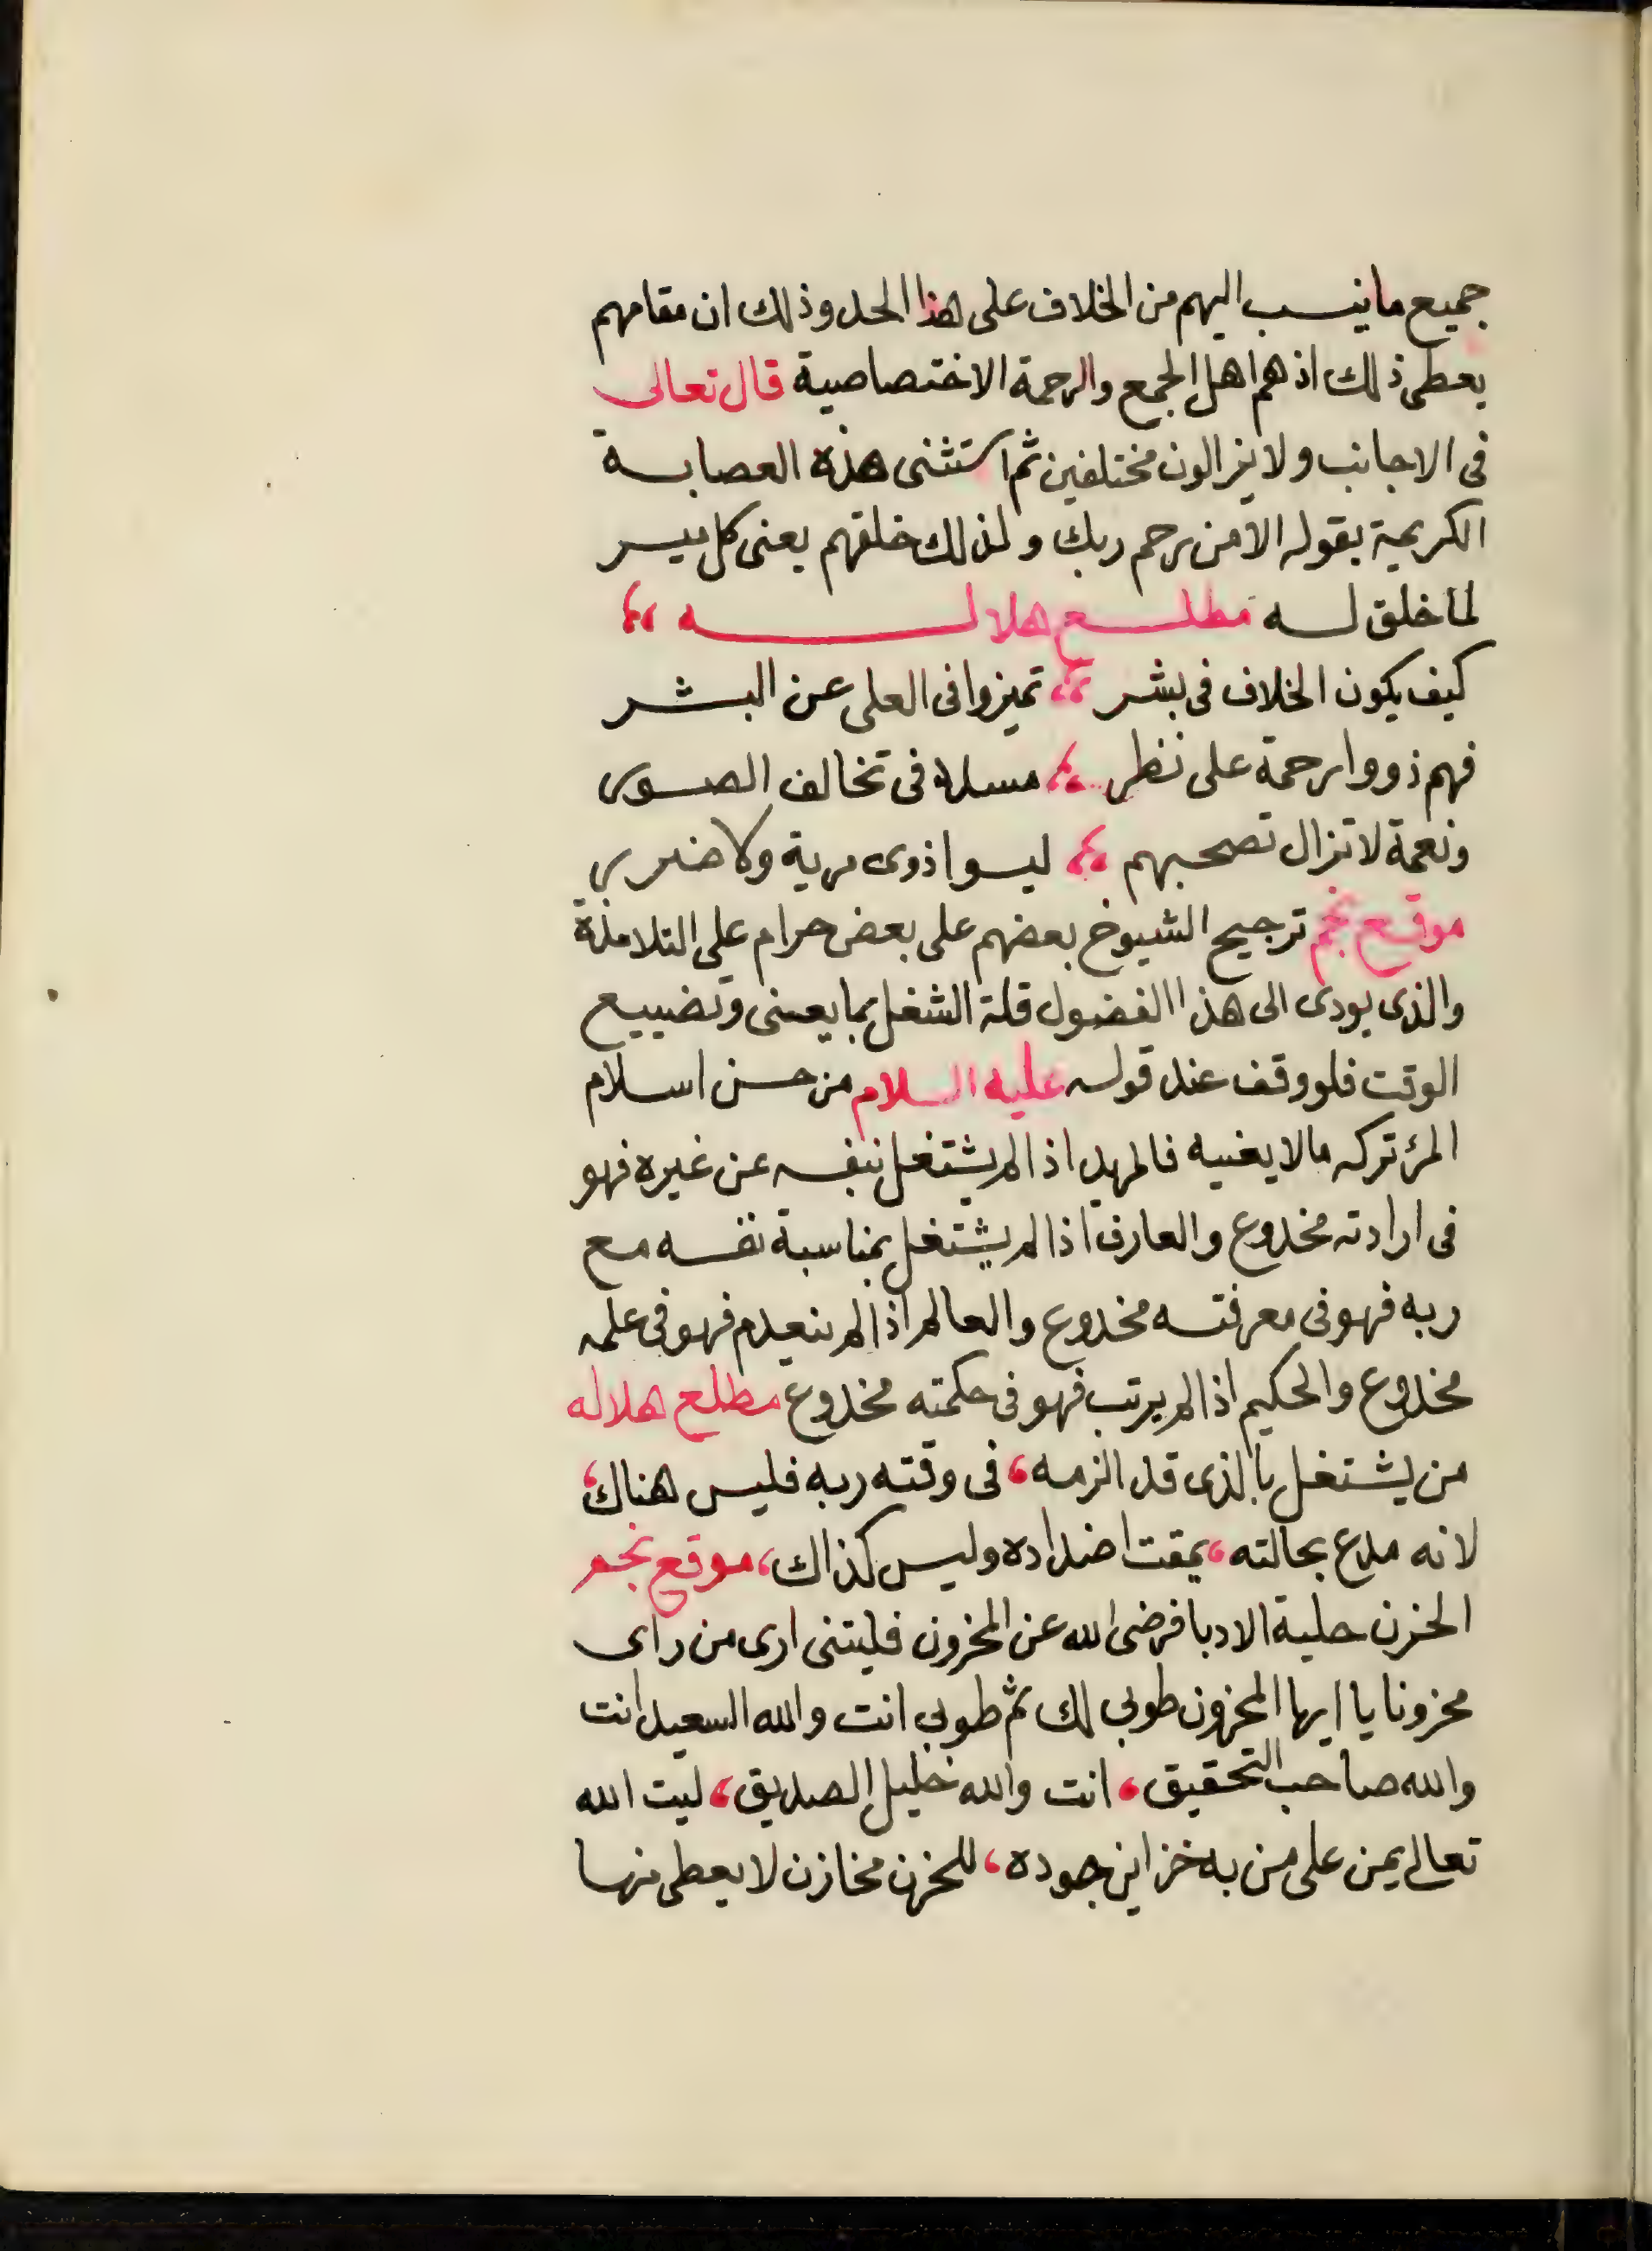 جميع ما ينسب اليهم من الخلاف على هذا الحد وذلك ان مقامهم
يعطى ذلك اذ هم اهل الجمع والرحمة الاختصاصية قال تعالى
فى الاجانب ولا يزالون مختلفين ثم استثنى هذه العصابة
الكريمة بقوله الا من رحم ربك ولذلك خلقهم يعنى كل ميسر
لما خلق له مطلع هلاله ،،
كيف يكون الخلاف فى بشر ،، تميزوا فى العلى عن البشر
فهم ذووا رحمة على نظر ،، مسلم فى تخالف الصور
ونعمة لا تزال تصحبهم ،، ليسوا ذوى مرية ولا ضرر
موقع نجم ترجيح الشيوخ بعضهم على بعض حرام على التلامذة
والذى يودى الى هذا الفضول قلة الشغل بما يعنى وتضييع
الوقت فلو وقف عند قوله عليه السلام من حسن اسلام
المرؤ تركه مالا يعنيه فالمريد اذا لم يشتغل بنفسه عن غيره فهو
فى ارادته مخدوع والعارف اذا لم يشتغل بمناسبة نفسه مع
ربه فهو فى معرفته مخدوع والعالم اذا لم ينعدم فهو فى علمه
مخدوع والحكيم اذا لم يرتب فهو فى حكمته مخدوع مطلع هلاله
من يشتغل بالذى قد الزمه ، فى وقته ربه فليس هناك ،
لانه مدع بحالته ، يمقت اضداده وليس كذاك ، موقع نجم
الحزن حلية الادبا فرضى الله عن المحزون فليتنى ارى من راى
محزونا يا ايها المحزون طوبى لك ثم طوبى انت والله السعيد انت
والله صاحب التحقيق ، انت والله خليل الصديق ، ليت الله
تعالى يمن على من به خزاين جوده ، للحزن مخازن لا يعطى منها